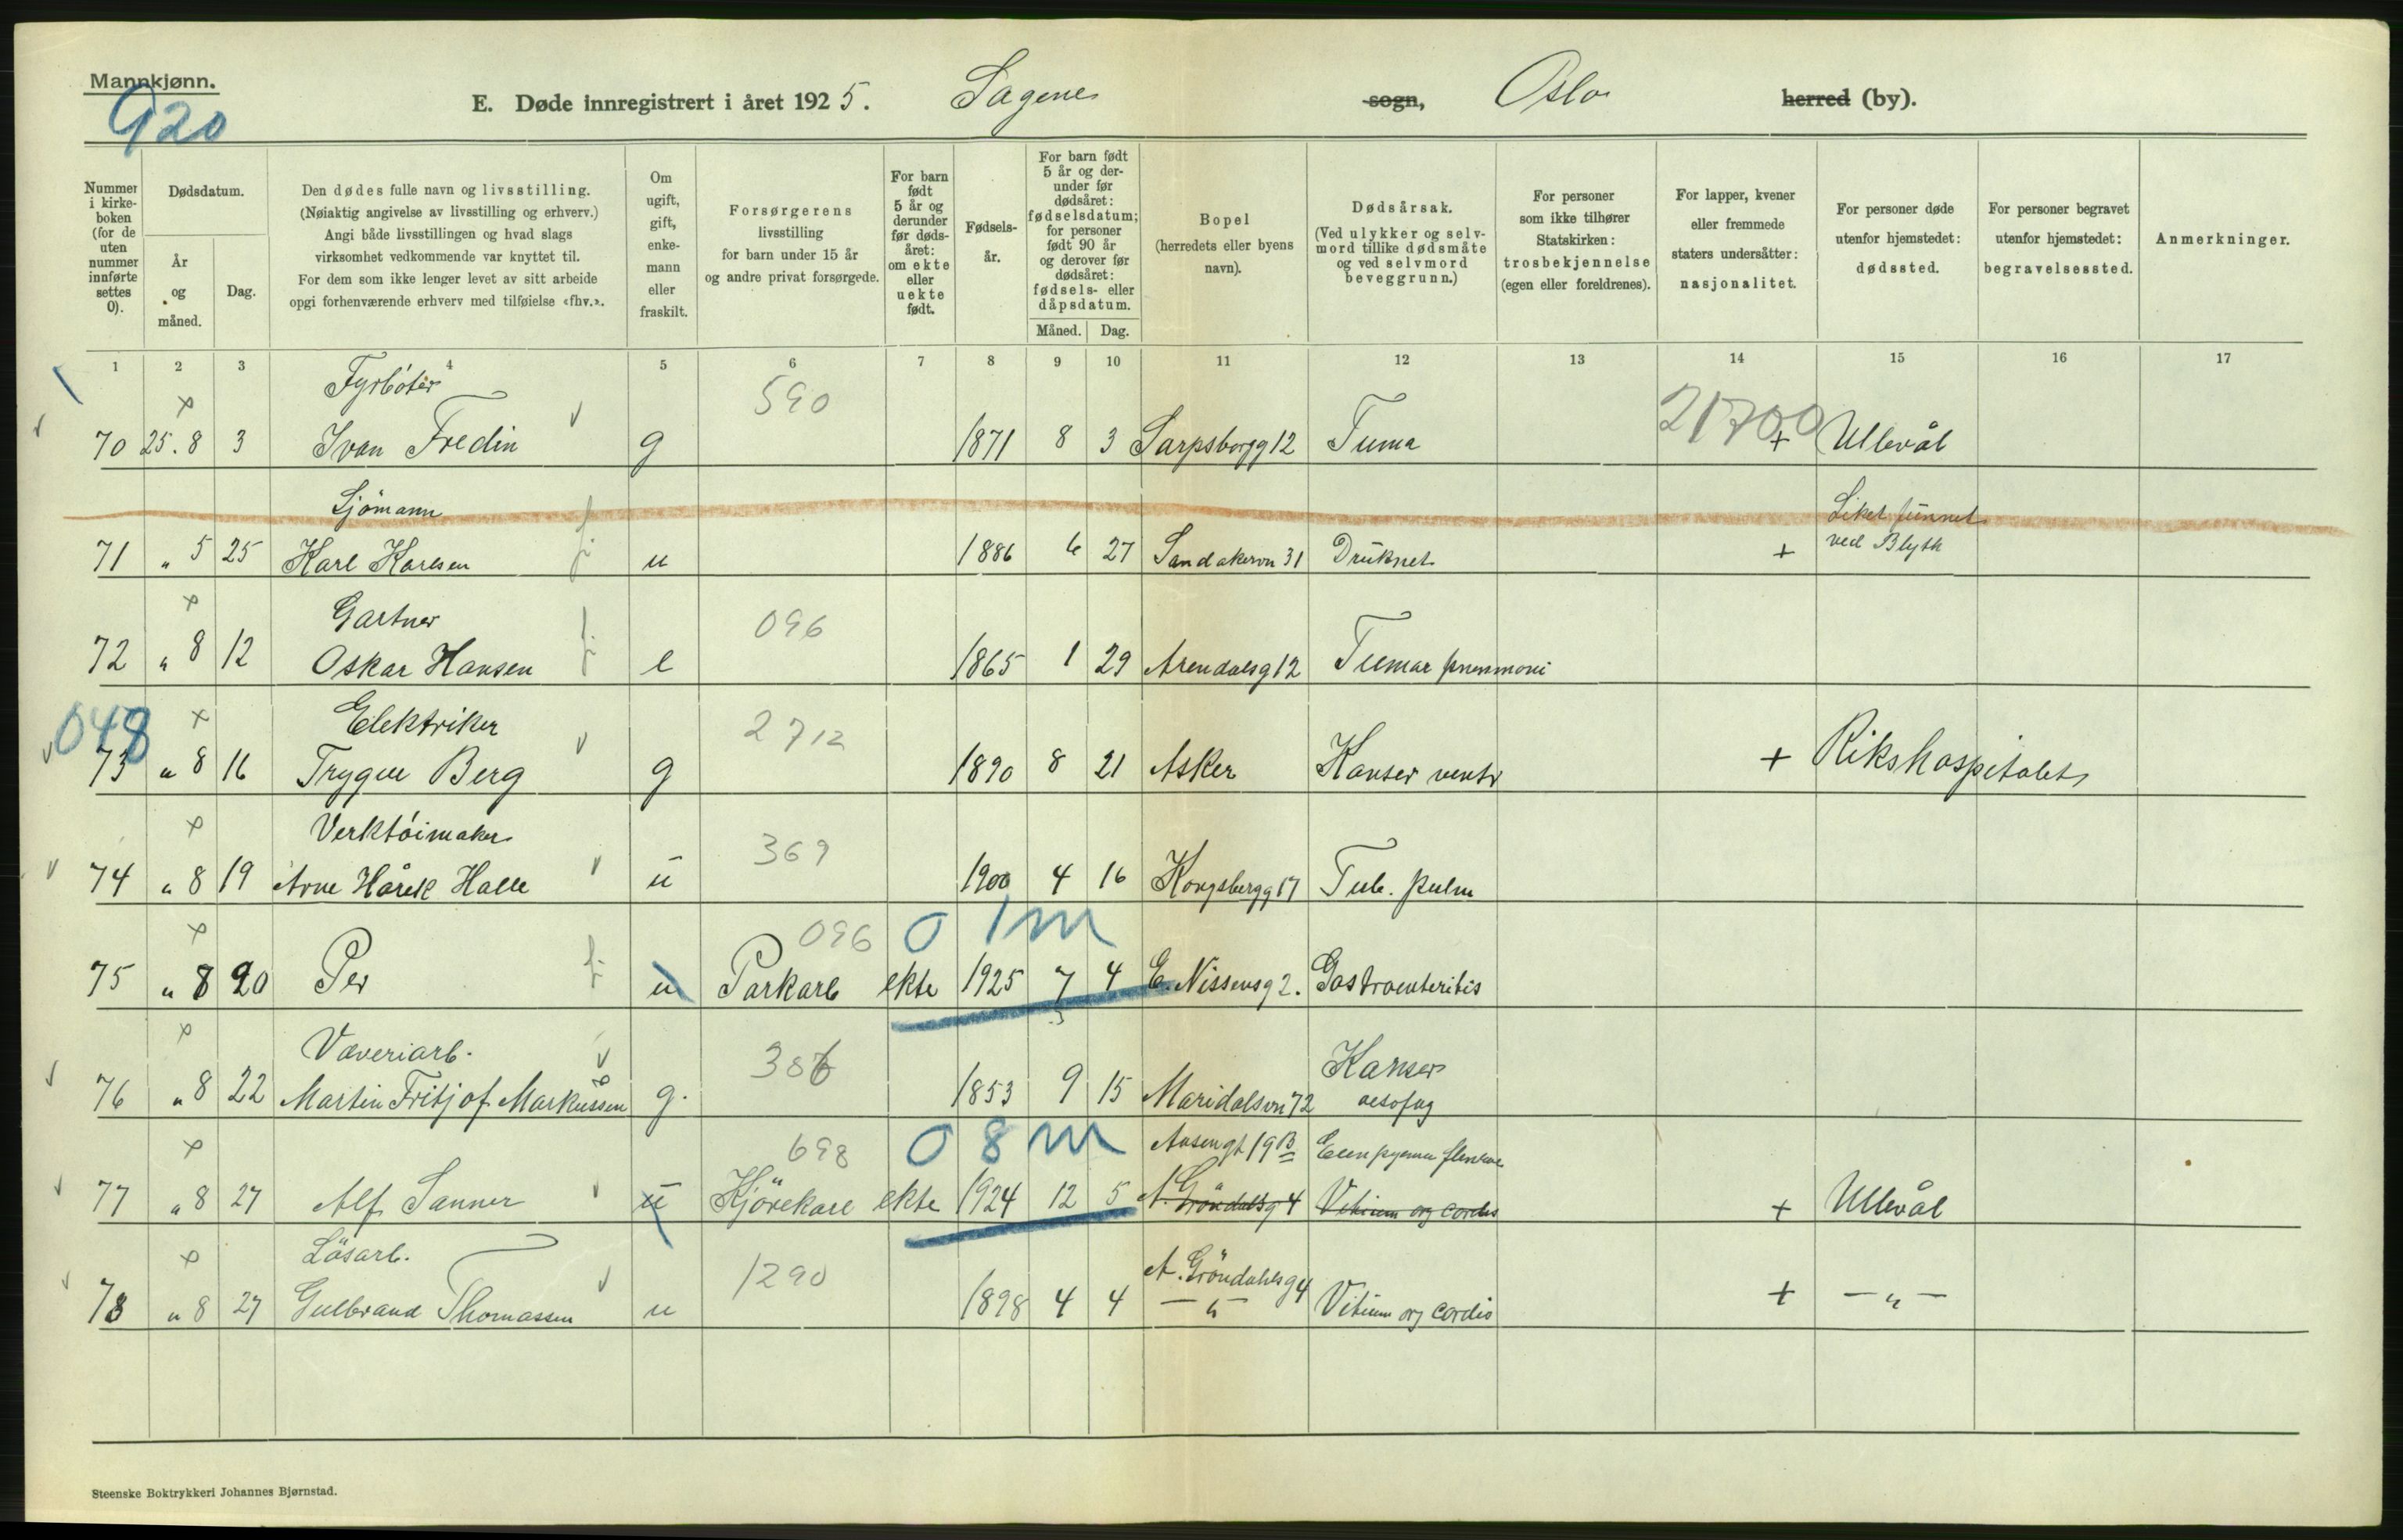 Mannkjønn.
920
E. Døde innregistrert i året 1925. Sagene sogn, Oslo herred (by).
Nummer i kirke-boken (for de uten nummer innførte settes 0).
Dødsdatum.
År og måned.
Dag.
Den dødes fulle navn og livsstilling.
(Nøiaktig angivelse av livsstilling og erhverv.)
Angi både livsstillingen og hvad slags
virksomhet vedkommende var knyttet til.
For dem som ikke lenger levet av sitt arbeide
opgi forhenværende erhverv med tilføielse «fhv.».
Om ugift, gift, enke-mann eller fraskilt.
Forsørgerens livsstilling for barn under 15 år og andre privat forsørgede.
For barn født 5 år og derunder før døds-året: om ekte eller uekte født.
Fødsels-år.
For barn født 5 år og der-under før dødsåret: fødselsdatum; for personer født 90 år og derover før dødsåret: fødsels- eller dåpsdatum.
Måned. Dag.
Bopel (herredets eller byens navn).
Dødsårsak. (Ved ulykker og selv-mord tillike dødsmåte og ved selvmord beveggrunn.)
For personer som ikke tilhører Statskirken: trosbekjennelse (egen eller foreldrenes).
For lapper, kvener eller fremmede staters undersåtter: nasjonalitet.
For personer døde utenfor hjemstedet: dødssted.
For personer begravet utenfor hjemstedet: begravelsessted.
Anmerkninger.
1 2 3 4 5 6 7 8 9 10 11 12 13 14 15 16 17
Fyrböter 590 21700
70 25.8 3 Ivan Fredin g 1871 8 3 Sarpsborgg 12 Tuma + Ullevål
Sjömann Liket funnet
71 " 5 25 Karl Karlsen u 1886 6 27 Sandakervn 31 Druknet + ved Blyth
Gartner 096
72 " 8 12 Oskar Hansen e 1865 1 29 Arendalsg 12 Tumar pneumoni
048 Elektriker 2712
73 " 8 16 Trygve Berg g 1890 8 21 Asker Kanser ventr + Rikshospitalet
Verktöimaker 369
74 " 8 19 Arne Hårek Halle u 1900 4 16 Kongsbergg 17 Tub. pulm
096 0 1m
75 " 8 20 Per u Parkarb ekte 1925 7 4 E. Nissensg 2. Gastroenteritis
Væveriarb. 386 Kanser
76 " 8 22 Martin Fritjof Markussen g. 1853 9 15 Maridalsvn 72 oesofag
698 0 8 m Aasengt 19 B Empyema
77 " 8 27 Alf Sanner u Kjörekarl ekte 1924 12 5 A. Gröndahlsg 4 Vitium org cordis + Ullevål
Lösarb. 1290 A. Gröndahlsg 4
78 " 8 27 Gulbrand Thomassen u 1898 4 4 — " — Vitium org cordis + — " —
Steenske Boktrykkeri Johannes Bjørnstad.